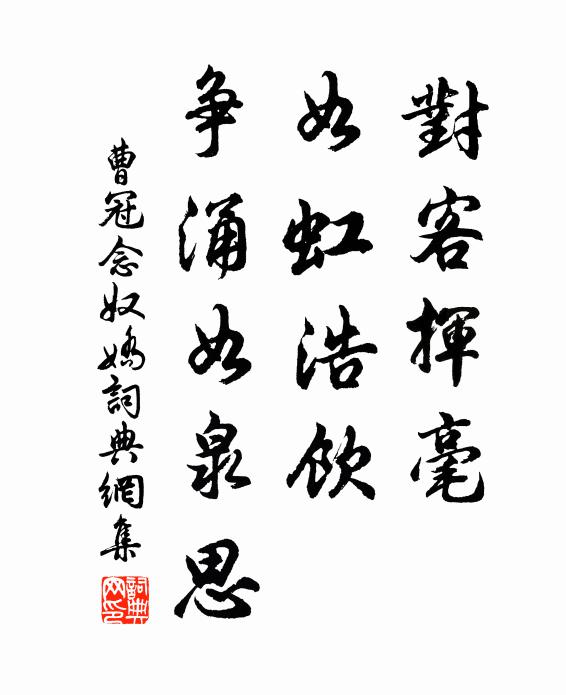 對客揮毫
如虹浩飲
争涌如泉思
曹冠念奴嬌詞典網集
詞典網印